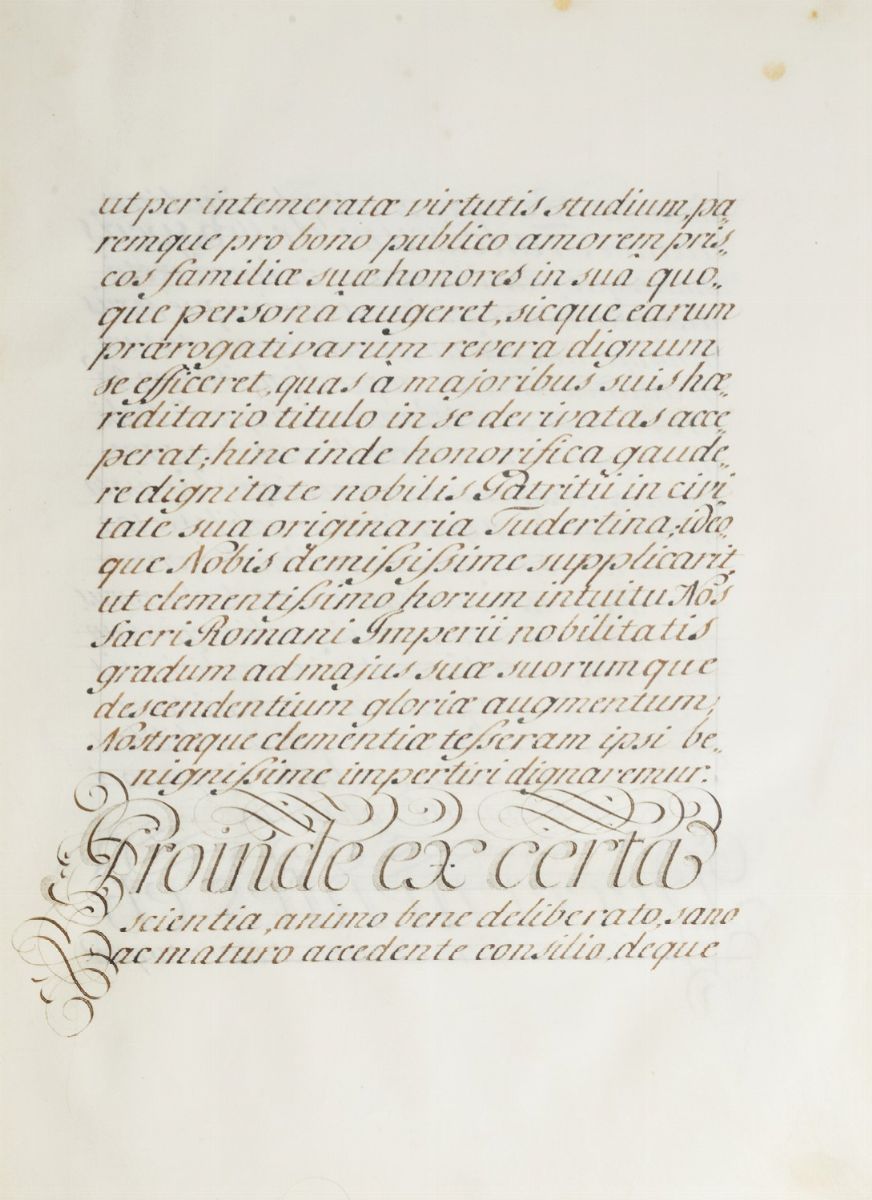 ut per intemeratæ virtutis studium, pa„
remque pro bono publico amorem pris„
cos familiæ suæ honores in suâ quo„
que personâ augeret, sicque earum
prærogativarum reverâ dignum
se efficeret, quas â majoribus suis hæ„
reditario titulo in se derivatas acce„
perat; hinc inde honorifica gaude„
re dignitate nobilis Patritii in civi„
tate sua originaria Tudertina; ideo„
que Nobis demiſsiſsime supplicarit,
ut clementiſsimo horum intuitu Nos
Sacri Romani Imperii nobilitatis
gradum ad majus suæ suorumque
descendentium gloriæ augmentum,
Nostræque clementiæ teſseram ipsi be„
nigniſsime impertiri dignaremur.
Proinde ex certa
scientia, animo bene deliberato, sano
ac maturo accedente consilio, deque